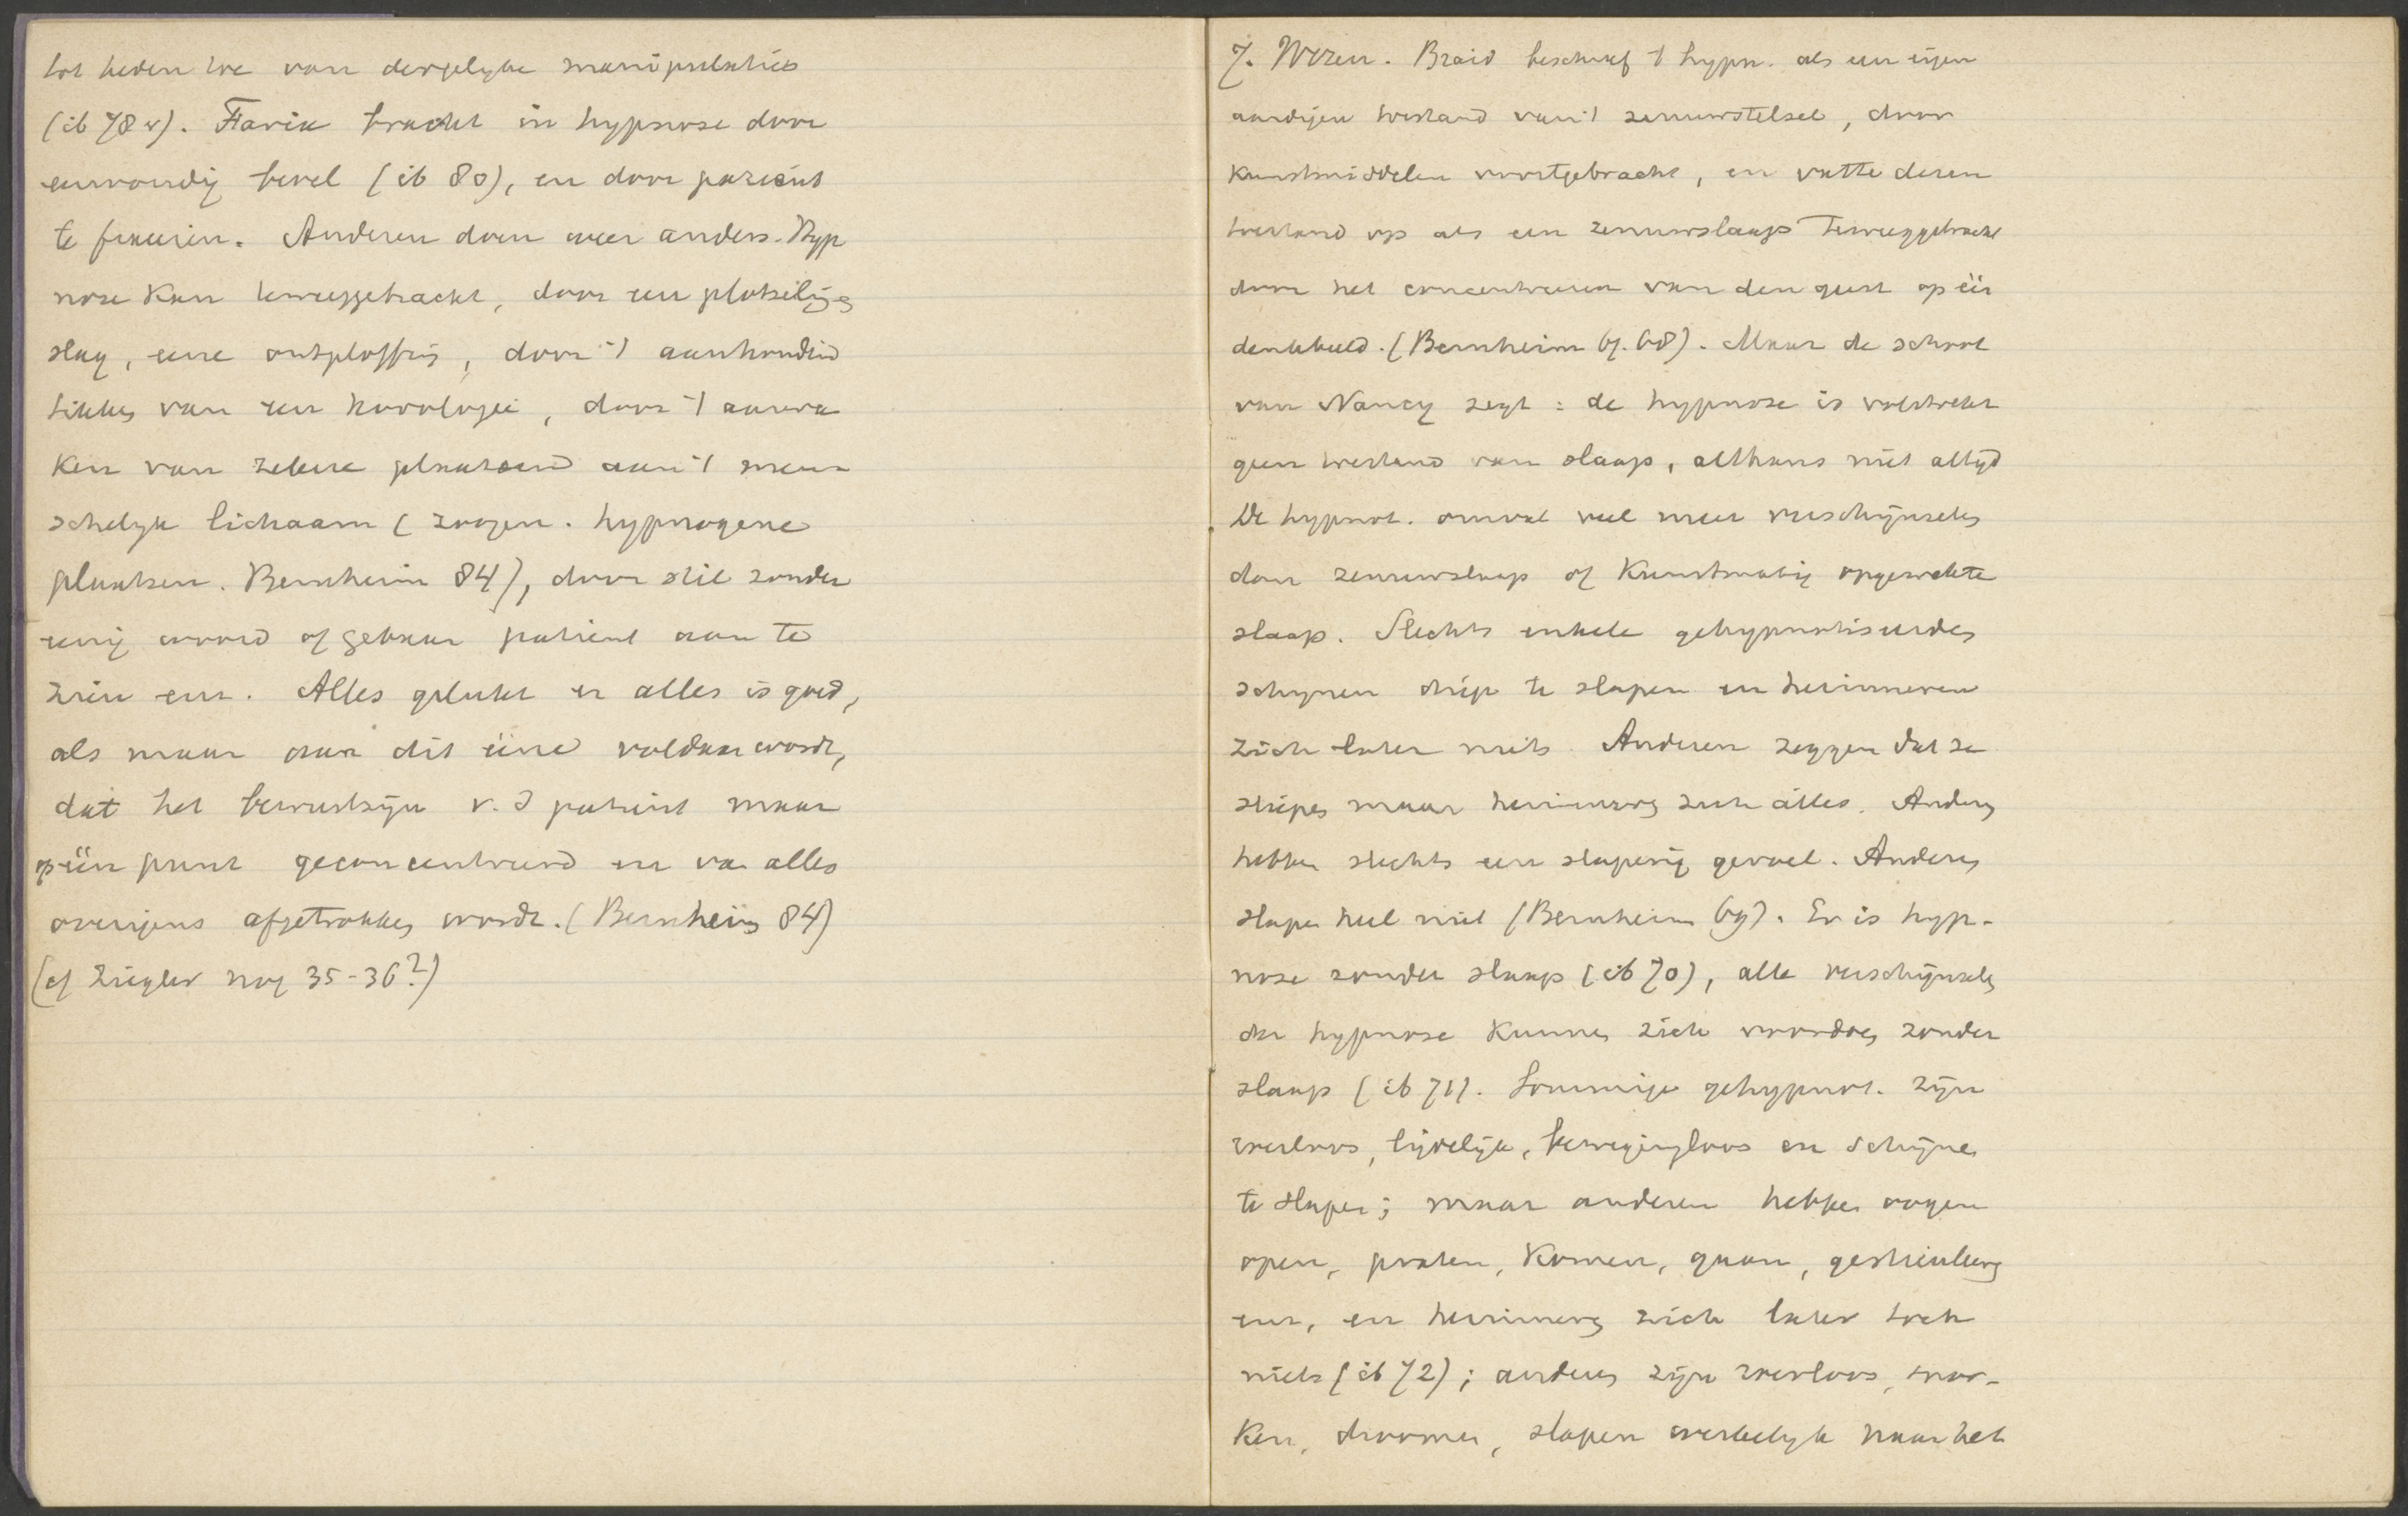 tot heden toe van dergelyke manipulaties
(ib 78 v). Faria bracht in hypnose door
eenvoudig bevel (ib 80), en door patient
te fixeeren. Anderen doen weer anders. Hyp
nose kan teweeggebracht, door een plotseling
slag, eene ontploffing, door 't aanhoudend
tikken van een horologie, door 't aanra
ken van zekere plaatsen aan 't men
schelyk lichaam (zoogen. hypnogene
plaatsen. Bernheim 84), door stil zonder
eenig woord of gebaar patient aan te
zien enz. Alles gelukt en alles is goed,
als maar aan dit ééne voldaan wordt,
dat het bewustzijn v. d patient maar
op één punt geconcentreerd en van alles
overigens afgetrokken wordt. (Bernheim 84)
(cf Ziegler nog 35-36?)
7. Wezen. Braid beschreef 't hypn. als een eigen
aardigen toestand van 't zenuwstelsel, door
kunstmiddelen voortgebracht, en vatte dezen
toestand op als een zenuwslaap teweeggebracht
door het concentreeren van den geest op één
denkbeeld. (Bernheim 67. 68). Maar de school
van Nancy zegt: de hypnose is volstrekt
geen toestand van slaap, althans niet altijd
De hypnot. omvat veel meer verschijnselen
dan zenuwslaap of kunstmatig opgewekte
slaap. Slechts enkele gehypnotiseerden
schynen diep te slapen en herinneren
zich later niets. Anderen zeggen dat ze
sliepen maar herinneren zich alles. Anderen
hebben slechts een slaperig gevoel. Anderen
slapen heel niet (Bernheim 69). Er is hyp-
nose zonder slaap (ib 70), alle verschijnselen
der hypnose kunnen zich voordoen zonder
slaap (ib 71). Sommige gehypnot. zijn
weerloos, lijdelijk, bewegingloos en schijnen
te slapen; maar anderen hebben oogen
open, praten, komen, gaan, gesticuleeren
enz, en herinneren zich later toch
niets (ib 72); anderen zijn weerloos, snor-
ken, droomen, slapen werkelyk naar het